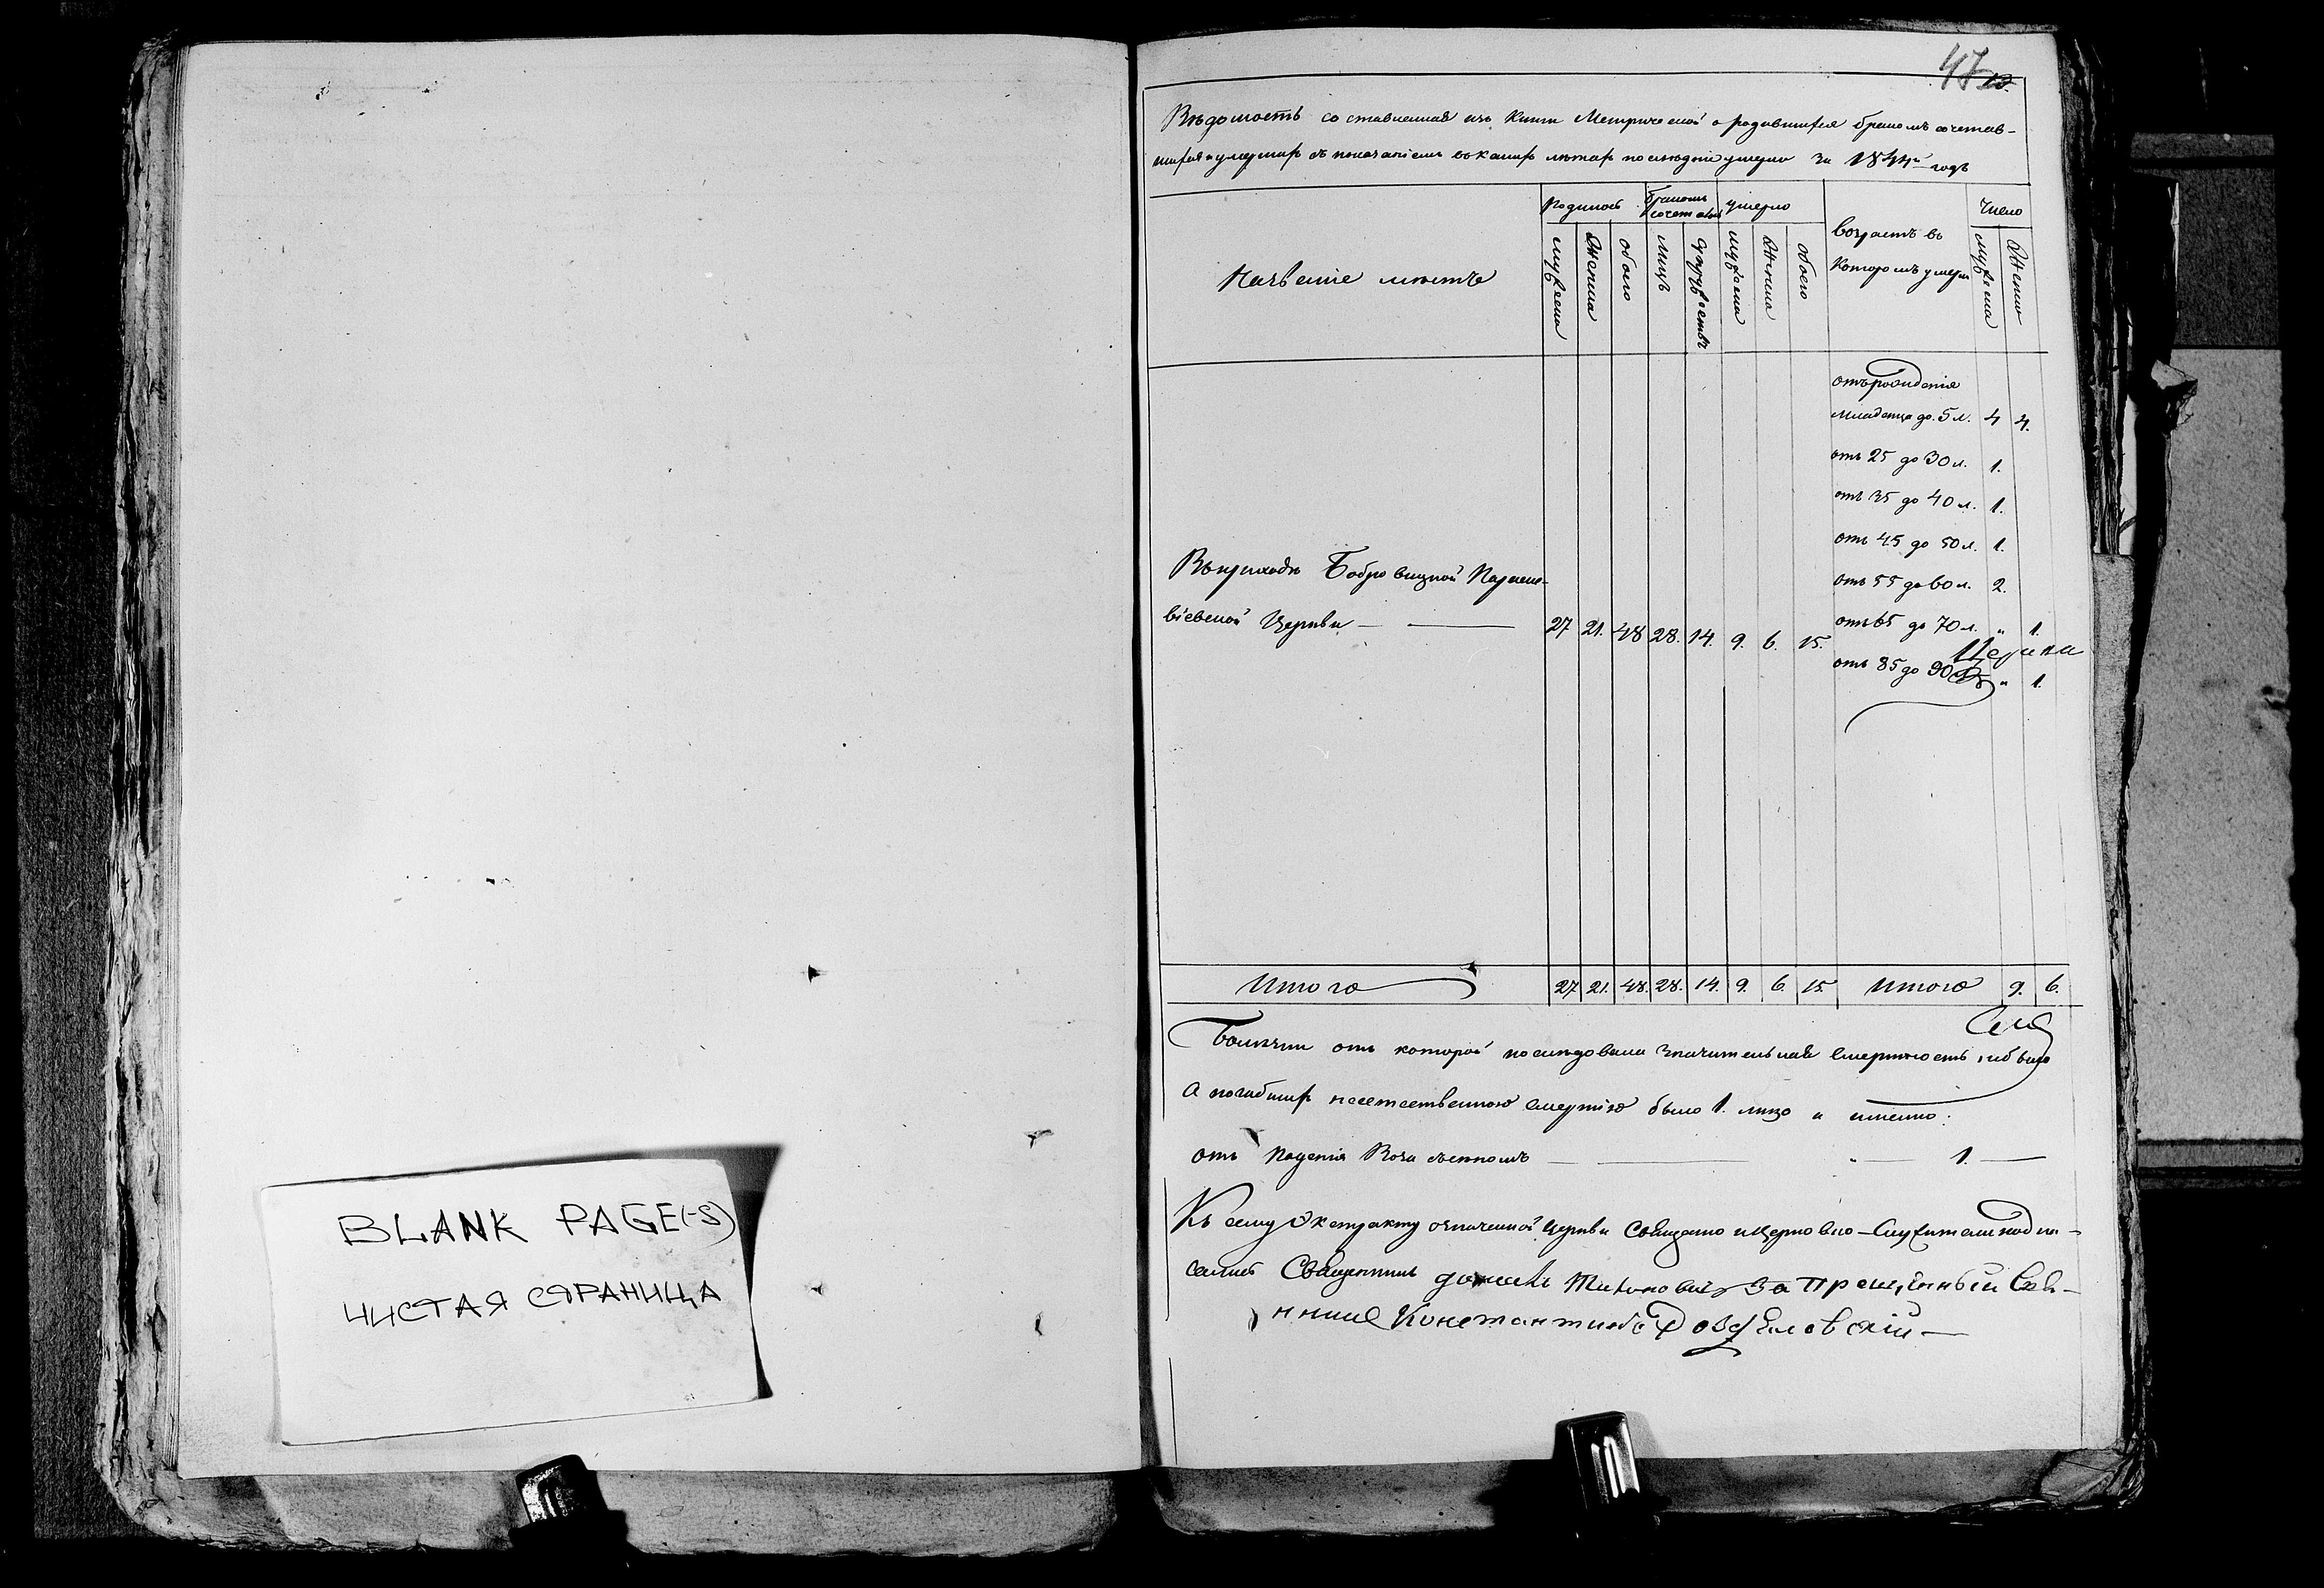 BLANK PAGE(-S)
ЧИСТАЯ СТРАНИЦА
47
Вѣдомость составленная изъ Книги Метрической о родившихся бракомъ сочетав-
шихся и умершихъ съ показаніемъ въ какихъ лѣтахъ послѣдніе умерли за 1844й годъ
Названіе мѣстъ
родилось
бракомъ
сочеталось
умерло
возрастъ въ
которомъ умерли
Число
мужеска
Женска
обоего
лицъ
супружествъ
мужеска
Женска
обоего
мужеска
Женско
отъ рожденія
младенца до 5 л. 4 4.
отъ 25 до 30 л. 1.
отъ 35 до 40 л. 1.
отъ 45 до 50 л. 1.
отъ 55 до 60 л. 2.
отъ 65 до 70 л. „ 1.
отъ 85 до 90 „ 1.
Въ приходѣ Бобровицкой Параске-
віевской Церкви — — 27 21. 48 28. 14. 9. 6. 15.
Итого 27 21. 48. 28. 14. 9. 6. 15. Итого 9. 6.
Болѣзни отъ которой послѣдовала значительная смертность небыло
А погибшихъ неестественною смертію было 1. лицо а именно:
отъ паденія Воза сѣномъ — — „ — 1. —
Къ сему Экстракту означенной Церкви Священно и Церковно-Служители подпи-
сались Священникъ
Константинъ